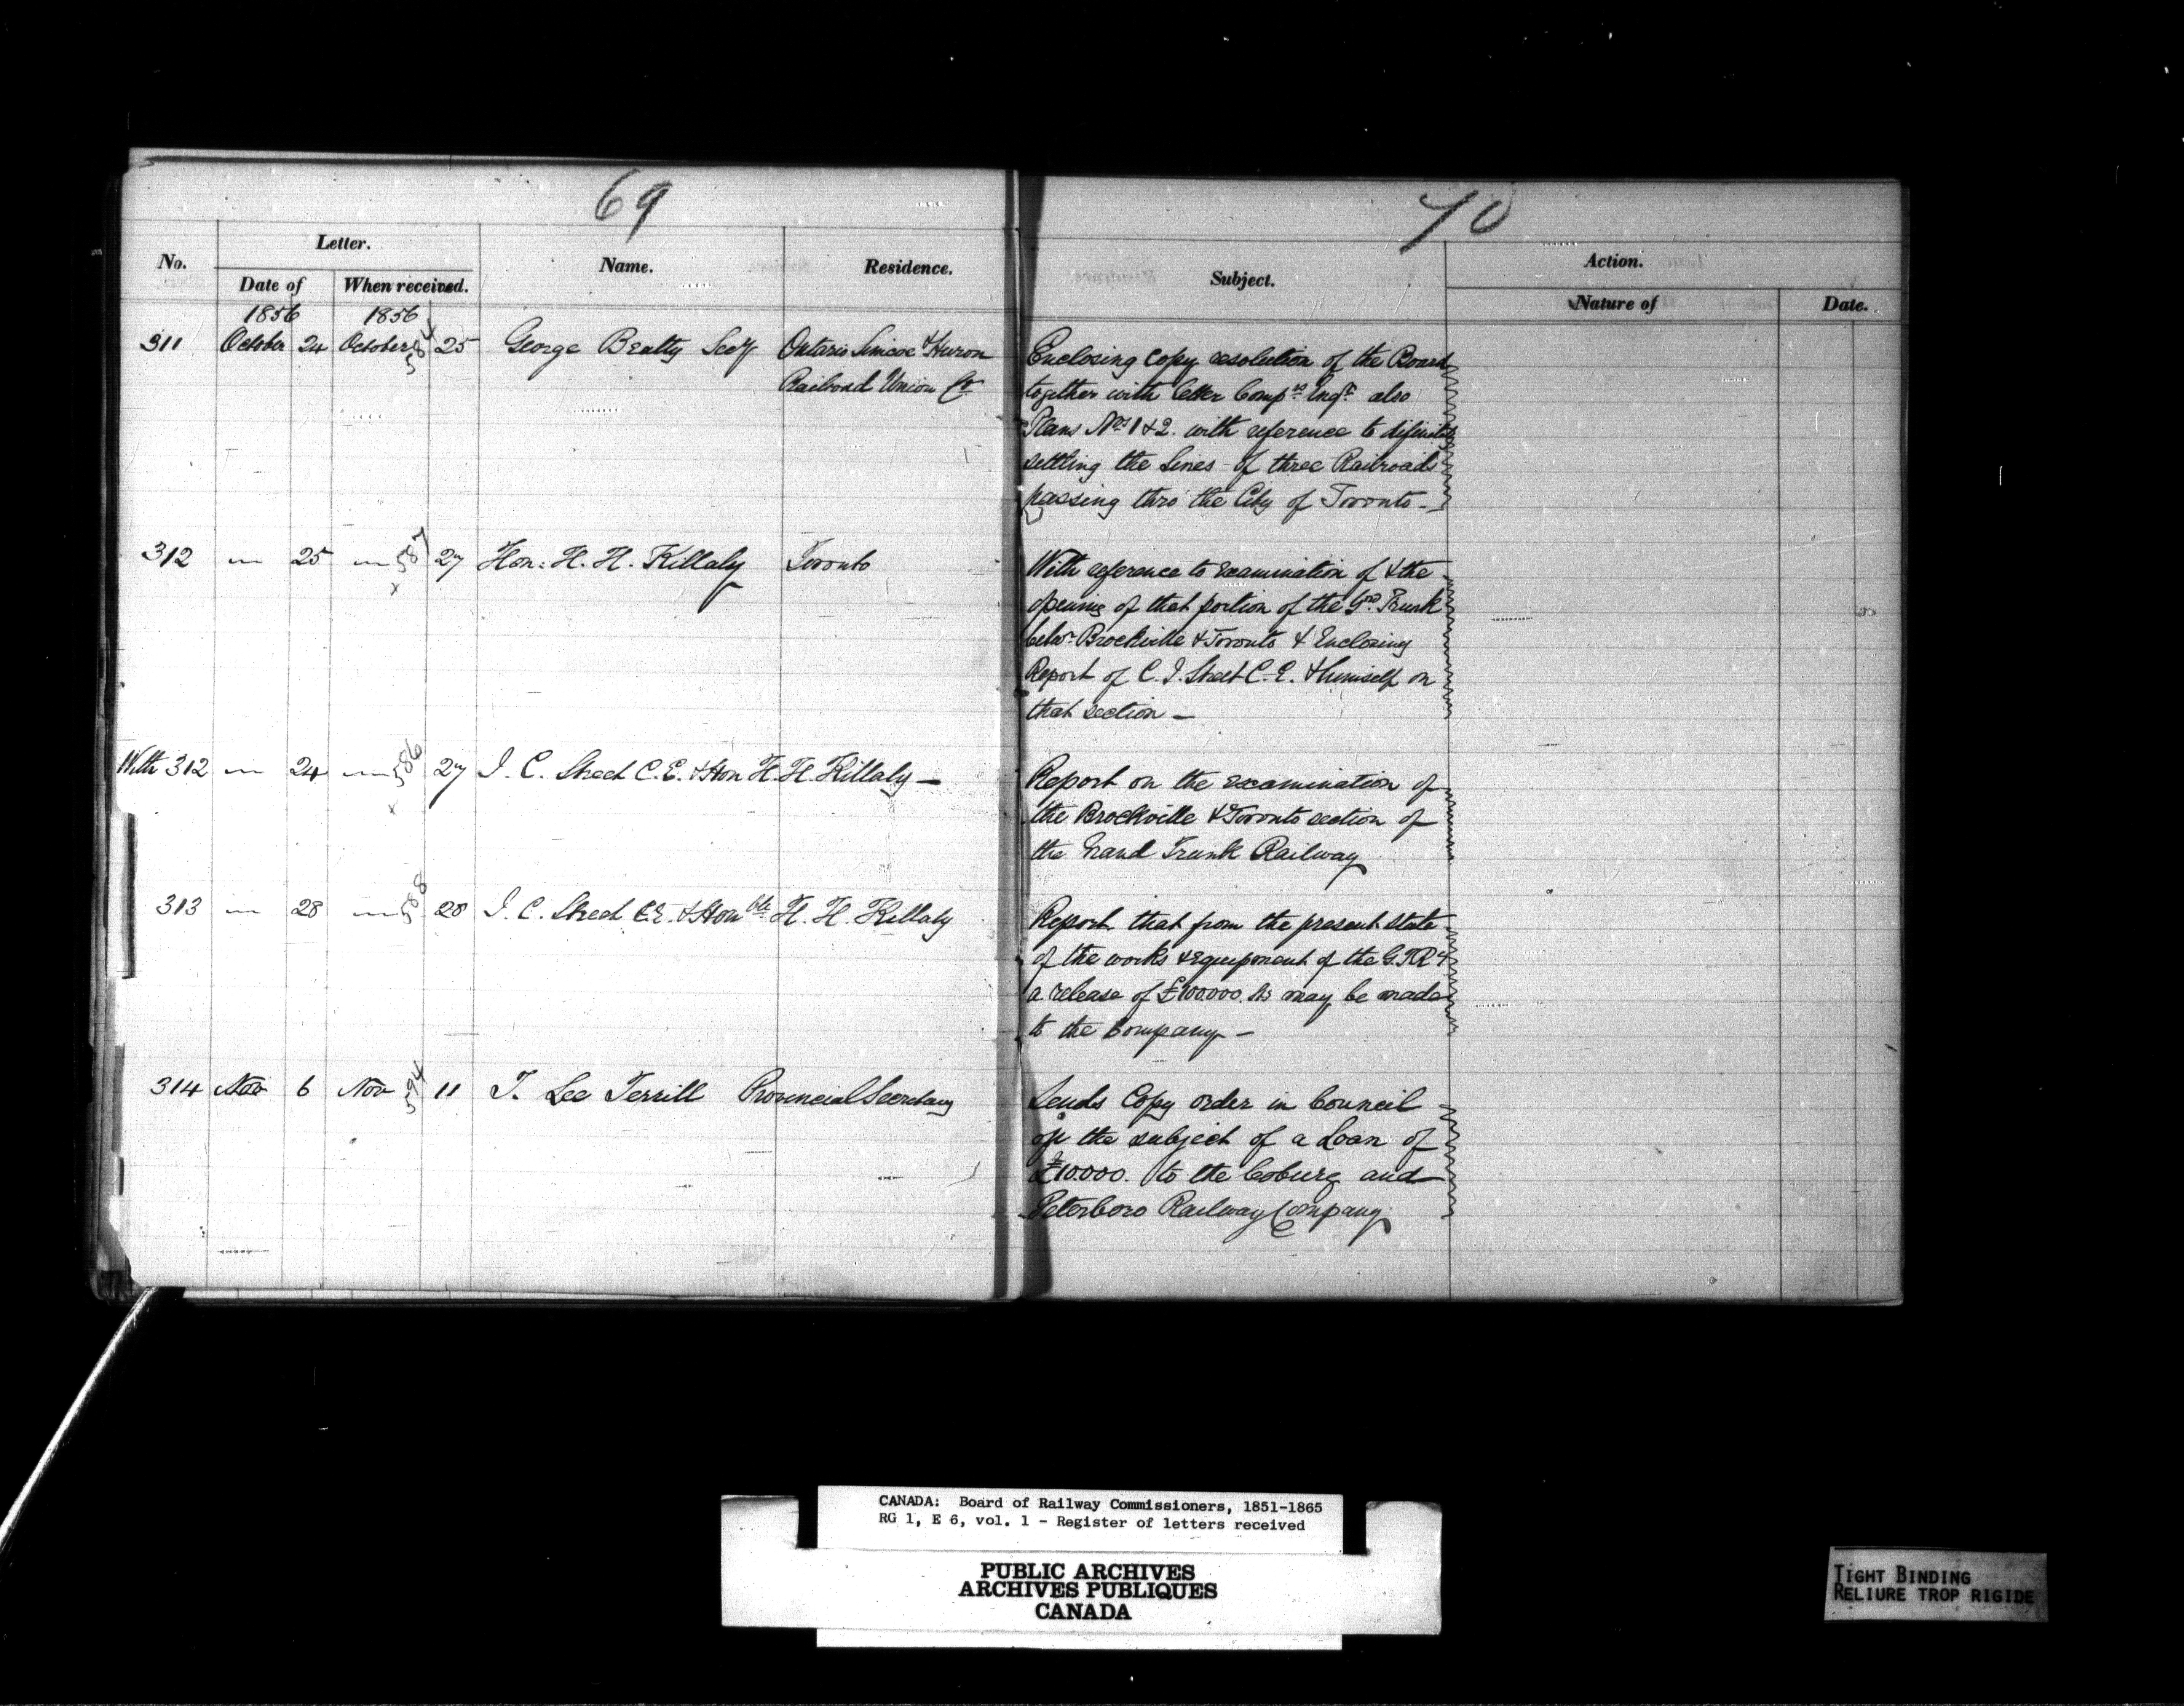 69
No.
Letter.
Date of
When received.
Name.
Residence.
1856
1856
311 October 24 October 584 25 George Beatty Secy Ontario Simcoe & Huron
Railroad Union Co
312 " 25 " 587 27 Hon: H. H. Killaly Toronto
x
With 312 " 24 " 586 27 J. C. Street C.E. & Hon H. H. Killaly —
x
313 " 28 " 588 28 J. C. Street C.E. & Honble H. H. Killaly
314 Nov 6 Nov 594 11 T. Lee Terrill Provincial Secretary
70
Subject.
Action.
Nature of
Date.
Enclosing copy resolution of the Board
together with letter Compys Engr also
Plans Nos 1 & 2. with reference to
settling the lines of three Railroads
passing thro' the City of Toronto -
With reference to examination of & the
opening of that portion of the Gd Trunk
betwn Brockville & Toronto & Enclosing
Report of C. J. Street C.E. & himself on
that section —
Report on the examination of
the Brockville & Toronto section of
the Grand Trunk Railway
Report that from the present state
of the works & Equipment of the G.T.Ry
a release of £100.000. may be made
to the Company —
Sends Copy order in Council
on the subject of a Loan of
£10.000. to the Coburg and
Peterboro Railway Company
CANADA: Board of Railway Commissioners, 1851-1865
RG 1, E 6, vol. 1 - Register of letters received
PUBLIC ARCHIVES
ARCHIVES PUBLIQUES
CANADA
TIGHT BINDING
RELIURE TROP RIGIDE